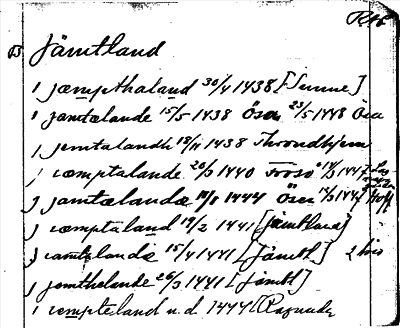 Jämtland
i jæmpthaland 30/4 1438 [Sunne]
i jæmtælande 15/5 1438 Ösa 23/5 1448 Ösa
i jemtalandh 18/11 1438 Throndhjem
i iæmptalande 20/3 1440 Frösö 14/3 1447
i jamtælandæ 1444 14/3 1447
i iæmptaland 19/2 1441 [Jämtland]
i iamtelandæ 15/4 1441 [Jämtl.] 2 bis
i jomthelande 26/3 1441 [Jämtl]
i iempteland u.d. 1444 [Ragunda